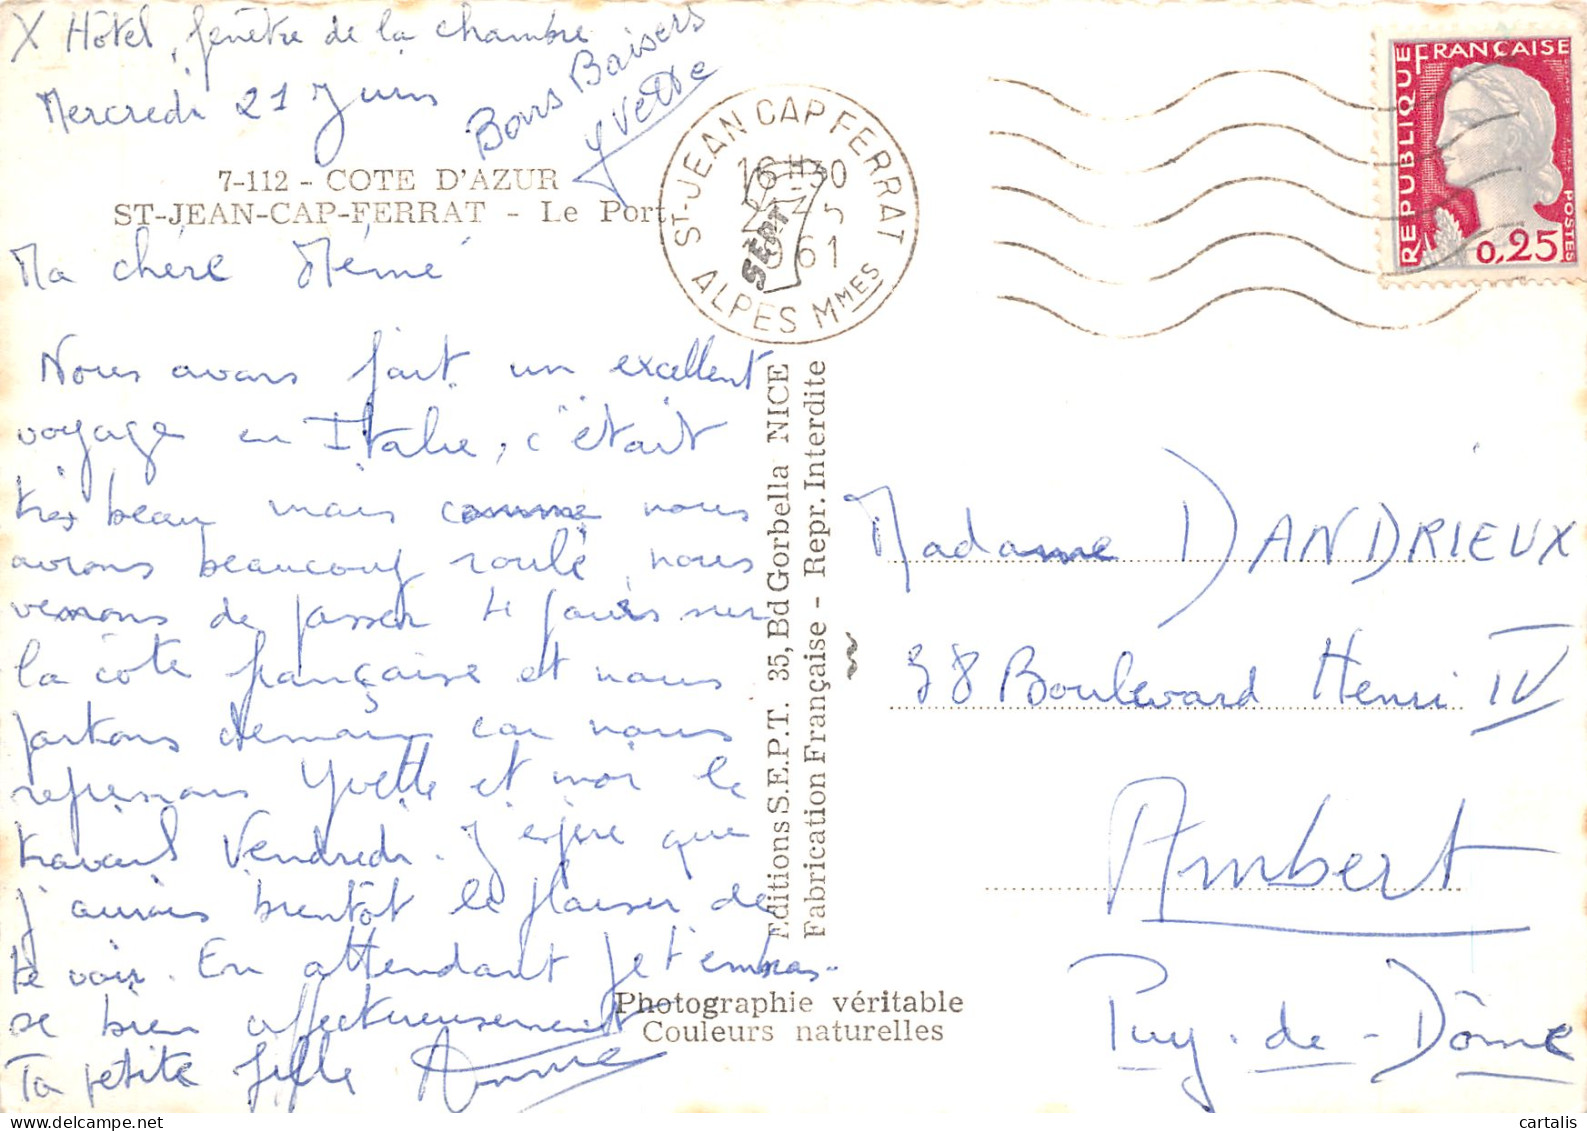 X Hôtel, fenêtre de la chambre
Mercredi 21 Juin
Bons Baisers
Yvette
7-112 - COTE D'AZUR
ST-JEAN-CAP-FERRAT - Le Port
Ma chère Mémé
Nous avons fait un excellent
voyage en Italie, c'était
très beau mais comme nous
avons beaucoup roulé, nous
venons de passer 4 jours sur
la côte française et nous
partons demain car nous
reprenons Yvette et moi le
travail Vendredi. J'espère que
j'aurais bientôt le plaisir de
te voir. En attendant je t'embras-
se bien affectueusement
Ta petite fille Anne
ST-JEAN CAP FERRAT
16 H 30
61
ALPES MMES
SEPT
Editions S.E.P.T. 35, Bd Gorbella NICE
Fabrication Française - Repr. Interdite
Photographie véritable
Couleurs naturelles
REPUBLIQUE FRANÇAISE
POSTES
0,25
Madame DANDRIEUX
38 Boulevard Henri IV
Ambert
Puy-de-Dôme
cartalis